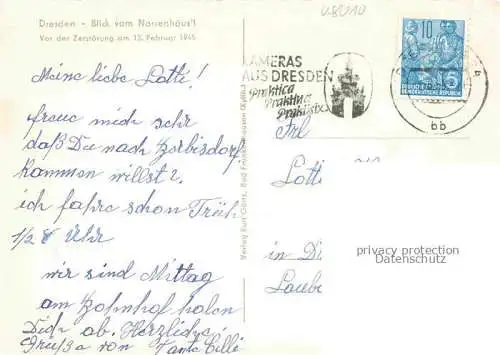 U8010
Dresden - Blick vom Narrenhäus'l
Vor der Zerstörung am 13. Februar 1945
Meine liebe Lotti!
freue mich sehr
daß Du nach Zerbisdorf
kommen willst?
ich fahre schon Früh
1/2 8 Uhr
wir sind Mittag
am Bahnhof holen
Dich ab. Herzliche
Grüße von Tante Cilli
Verlag Kurt Görtz, Bad
KAMERAS
AUS DRESDEN
Praktica
Praktina
10
5
DEUTSCHE
DEMOKRATISCHE REPUBLIK
bb
Frl
Lotti
in D
Laube
privacy protection
Datenschutz